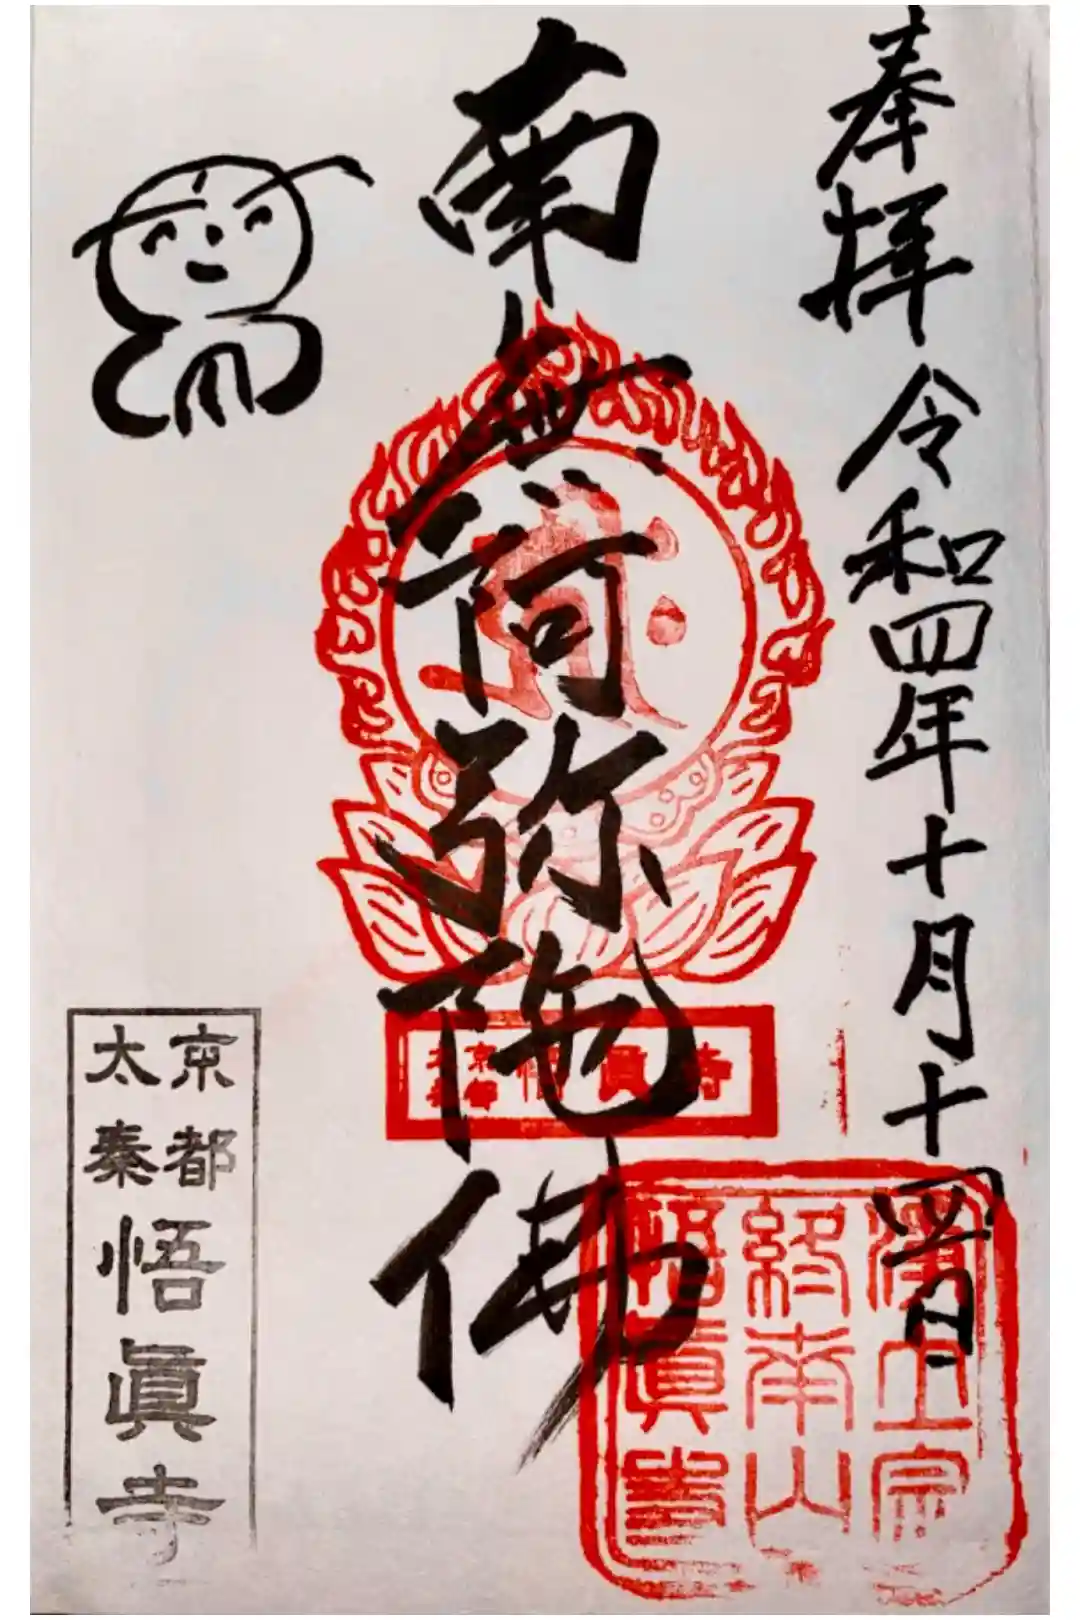 奉拝 令和四年十月十四日
南無阿弥陀佛
京都
太秦
悟眞寺
京都
太秦
悟眞寺
浄土宗
終南山
悟眞寺